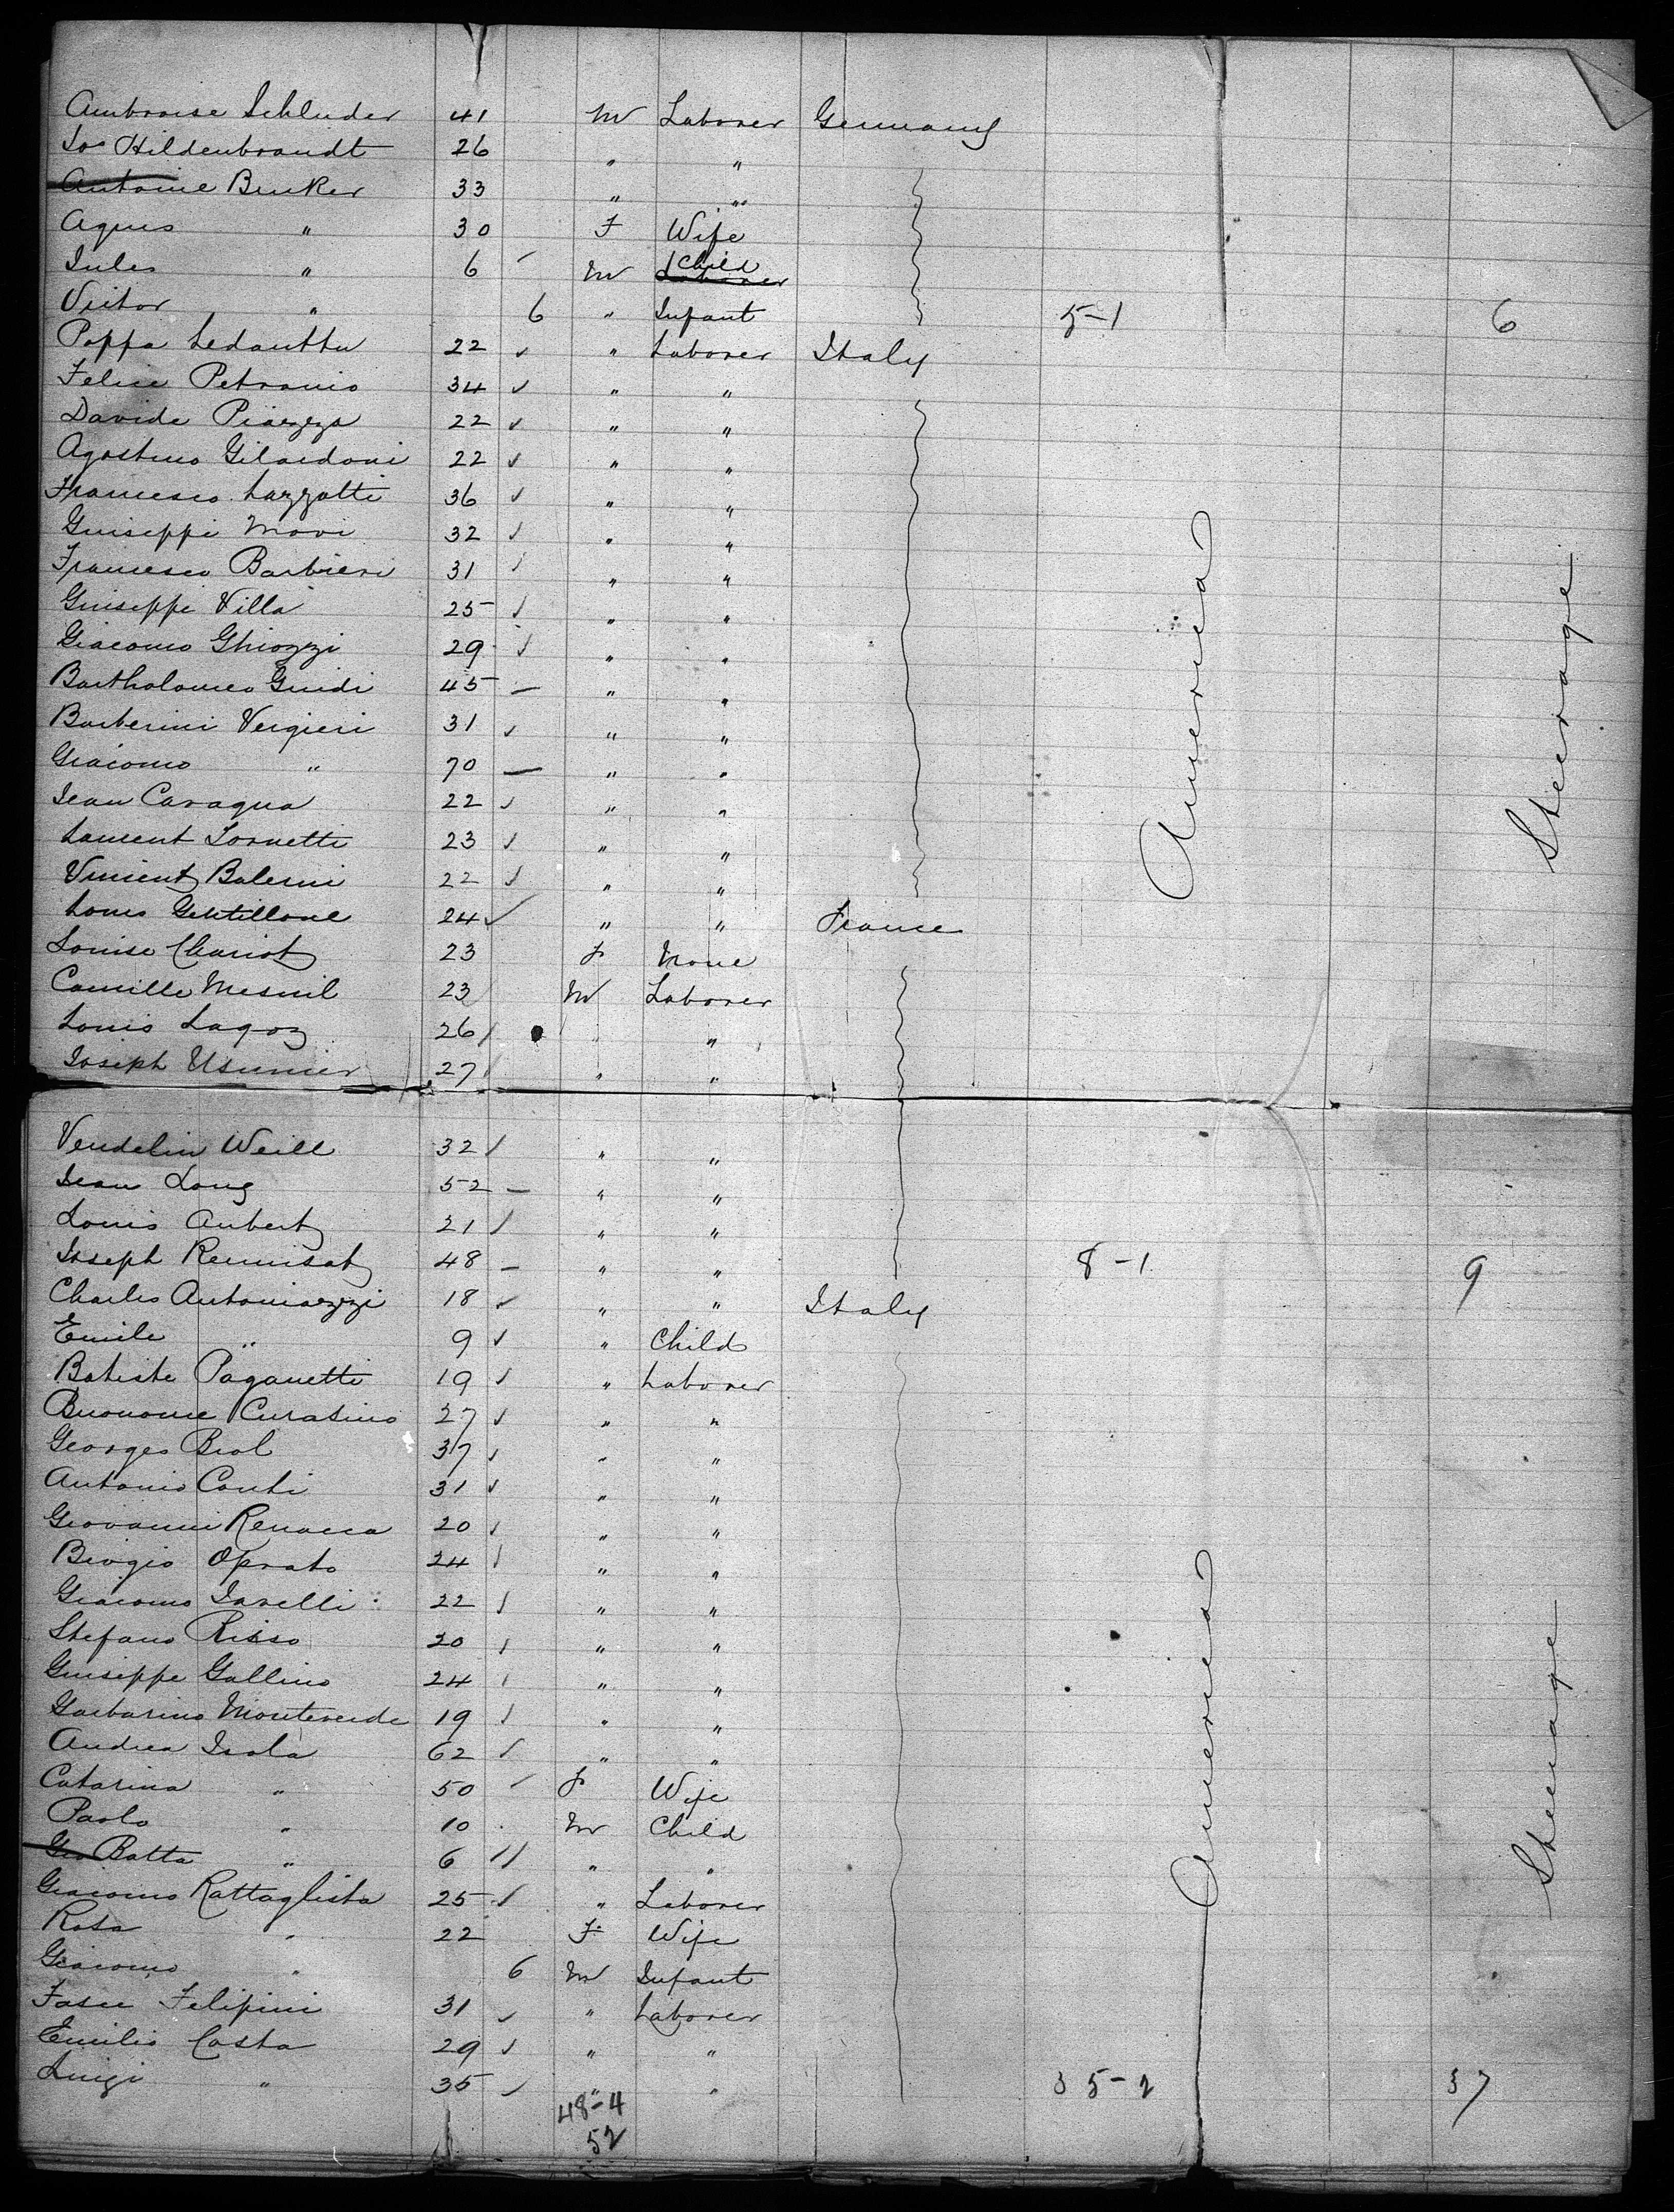 Ambroise Schluder 41 M Laborer Germany
Jos Hildenbrandt 26 " "
Antoine Bunker 33 " "
Agnes " 30 F Wife
Jules " 6 M Laborer Child
Victor " 6 " Infant 5-1 6
Poppa 22 " Laborer Italy
Felice Petronio 34 " "
Davide Piazza 22 " "
Agostino Gilardoni 22 " "
Francesco Lazzotti 36 " "
Guiseppi Movi 32 " "
Francesco Barbieri 31 " "
Guiseppi Villa 25 " "
Giacomo Ghiozzi 29 " "
Bartholomeo Guidi 45 " "
Barberini Vergieri 31 " "
Giacomo " 70 " "
Jean Caragna 22 " "
Laurent Tornetti 23 " "
Vincent Balerini 22 " "
Louis Gentillone 24 " " France
Louise Chariot 23 F None
Camille Mesnil 23 M Laborer
Louis Lagoz 26 " "
Joseph Usunier 27 " "
America
Steerage
Vendelin Weill 32 " "
Jean Long 52 " "
Louis Aubert 21 " "
Joseph Remisat 48 " " 8-1 9
Charles Antoniazzi 18 " " Italy
Emile " 9 " Child
Batiste Paganetti 19 " Laborer
Buonome Curatino 27 " "
Georges Biol 37 " "
Antonio Conti 31 " "
Giovanni Renacca 20 " "
Beogio Oprato 24 " "
Giacomo Iarelli 22 " "
Stefano Risso 20 " "
Guiseppe Gallino 24 " "
Garbarino Monteverde 19 " "
Andrea Isola 62 " "
Catarina " 50 F Wife
Paolo " 10 M Child
Gio Batta " 6 " "
Giacomo Rattaglista 25 " Laborer
Rosa " 22 F Wife
Giacomo " 6 M Infant
Fasce Felipini 31 " Laborer
Emilio Costa 29 " "
Luigi " 35 " " 35-2 37
America
Steerage
48-4
52